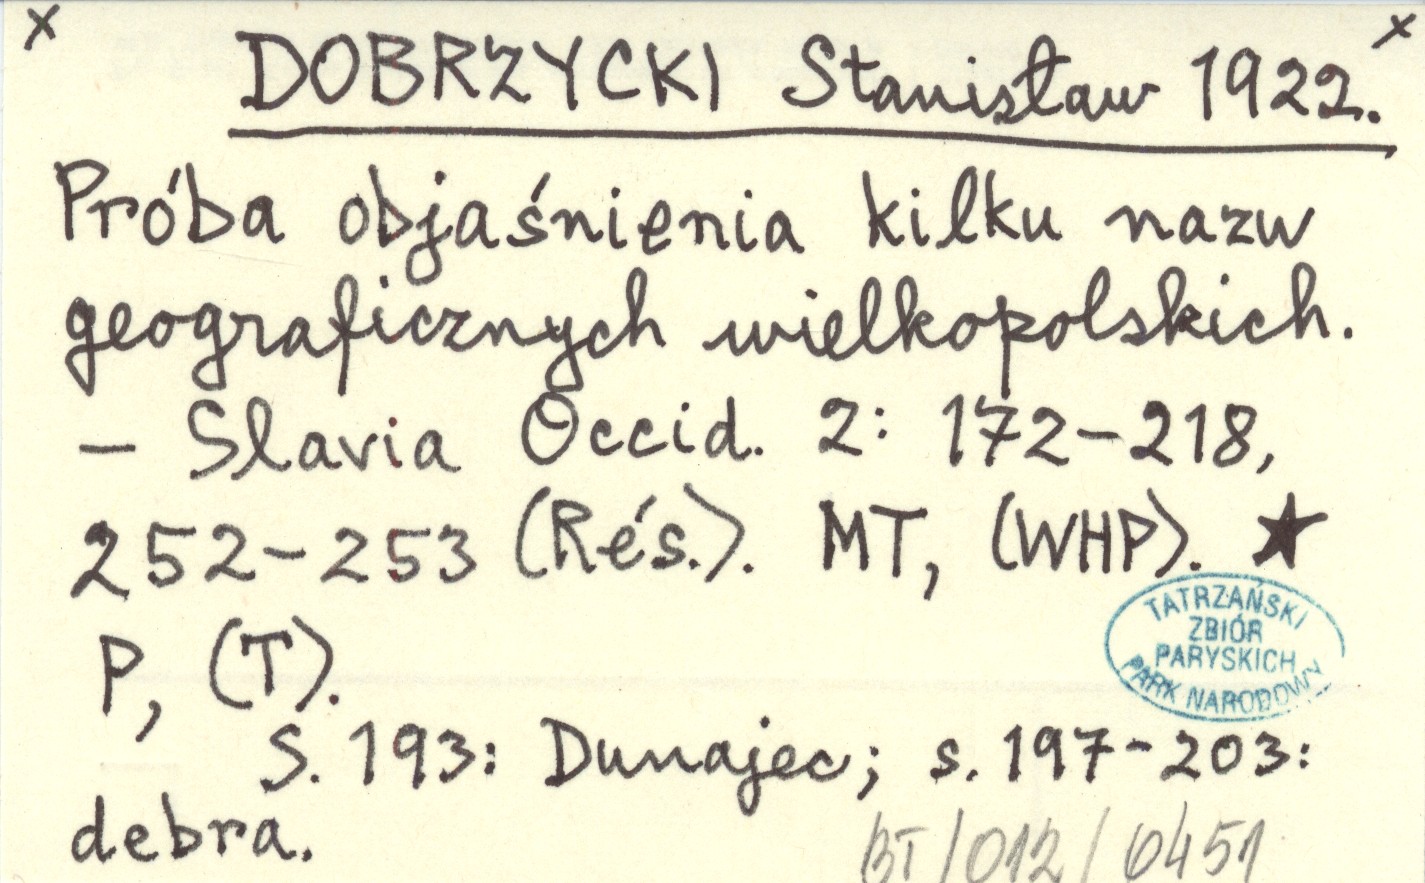 x x
DOBRZYCKI Stanisław 1922.
Próba objaśnienia kilku nazw
geograficznych wielkopolskich.
– Slavia Occid. 2: 172–218,
252–253 (Rés.). MT, (WHP). ★
P, (T).
TATRZAŃSKI
ZBIÓR
PARYSKICH
PARK NARODOWY
S. 193: Dunajec; s. 197–203:
debra.
BT/012/0451